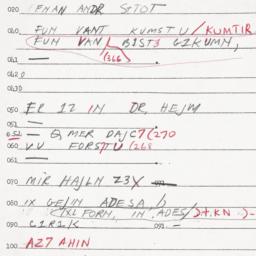 020 IFNAN ANDR STOT
040 FUM VANT KUMSTU/KUMTIR
(FUM VAN/ BIST3 GIKUMN,
041 — (366
042
043
050 ER 12 IM DR HEJM
051 —
052 — G MER DAJC7(270
060 VV FORSTU (268
061 —
070 MIR HAJLN Z3X
080 IX GEJIN ADESA
(IXL FORN, IN ADES/)+.KN )-
090 C1R1K 091 —
100 AZ7 AHIN